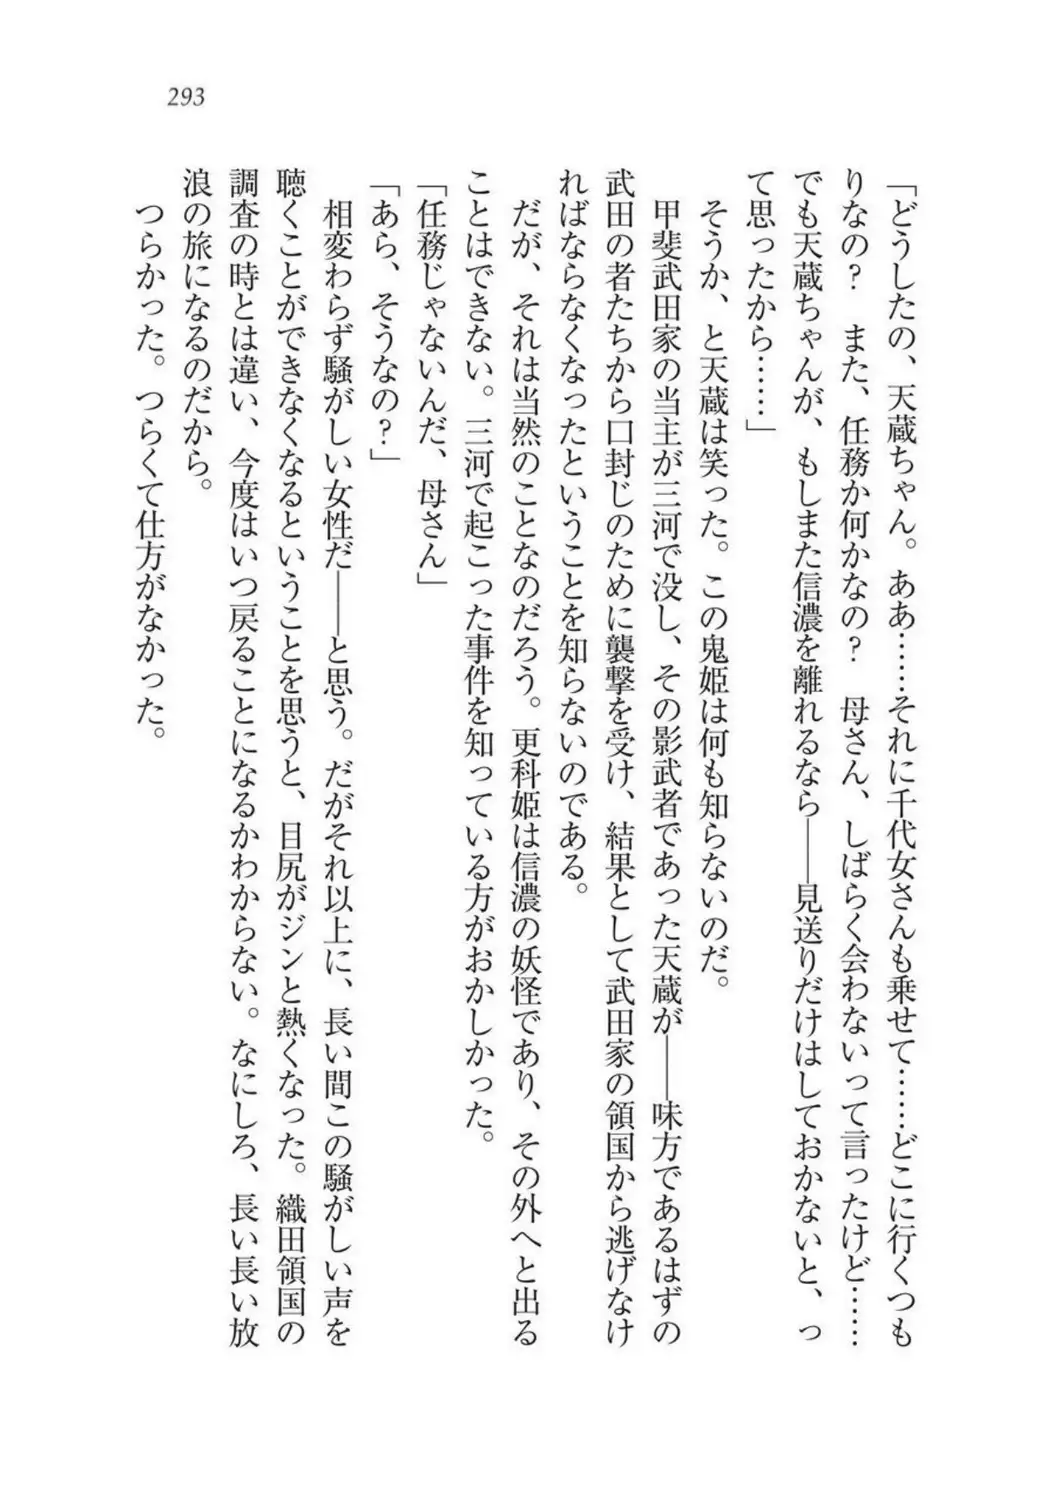 293
「どうしたの、天蔵ちゃん。ああ……それに千代女さんも乗せて……どこに行くつも
りなの？　また、任務か何かなの？　母さん、しばらく会わないって言ったけど……
でも天蔵ちゃんが、もしまた信濃を離れるなら――見送りだけはしておかないと、っ
て思ったから……」
　そうか、と天蔵は笑った。この鬼姫は何も知らないのだ。
　甲斐武田家の当主が三河で没し、その影武者であった天蔵が――味方であるはずの
武田の者たちから口封じのために襲撃を受け、結果として武田家の領国から逃げなけ
ればならなくなったということを知らないのである。
　だが、それは当然のことなのだろう。更科姫は信濃の妖怪であり、その外へと出る
ことはできない。三河で起こった事件を知っている方がおかしかった。
「任務じゃないんだ、母さん」
「あら、そうなの？」
　相変わらず騒がしい女性だ――と思う。だがそれ以上に、長い間この騒がしい声を
聴くことができなくなるということを思うと、目尻がジンと熱くなった。織田領国の
調査の時とは違い、今度はいつ戻ることになるかわからない。なにしろ、長い長い放
浪の旅になるのだから。
　つらかった。つらくて仕方がなかった。